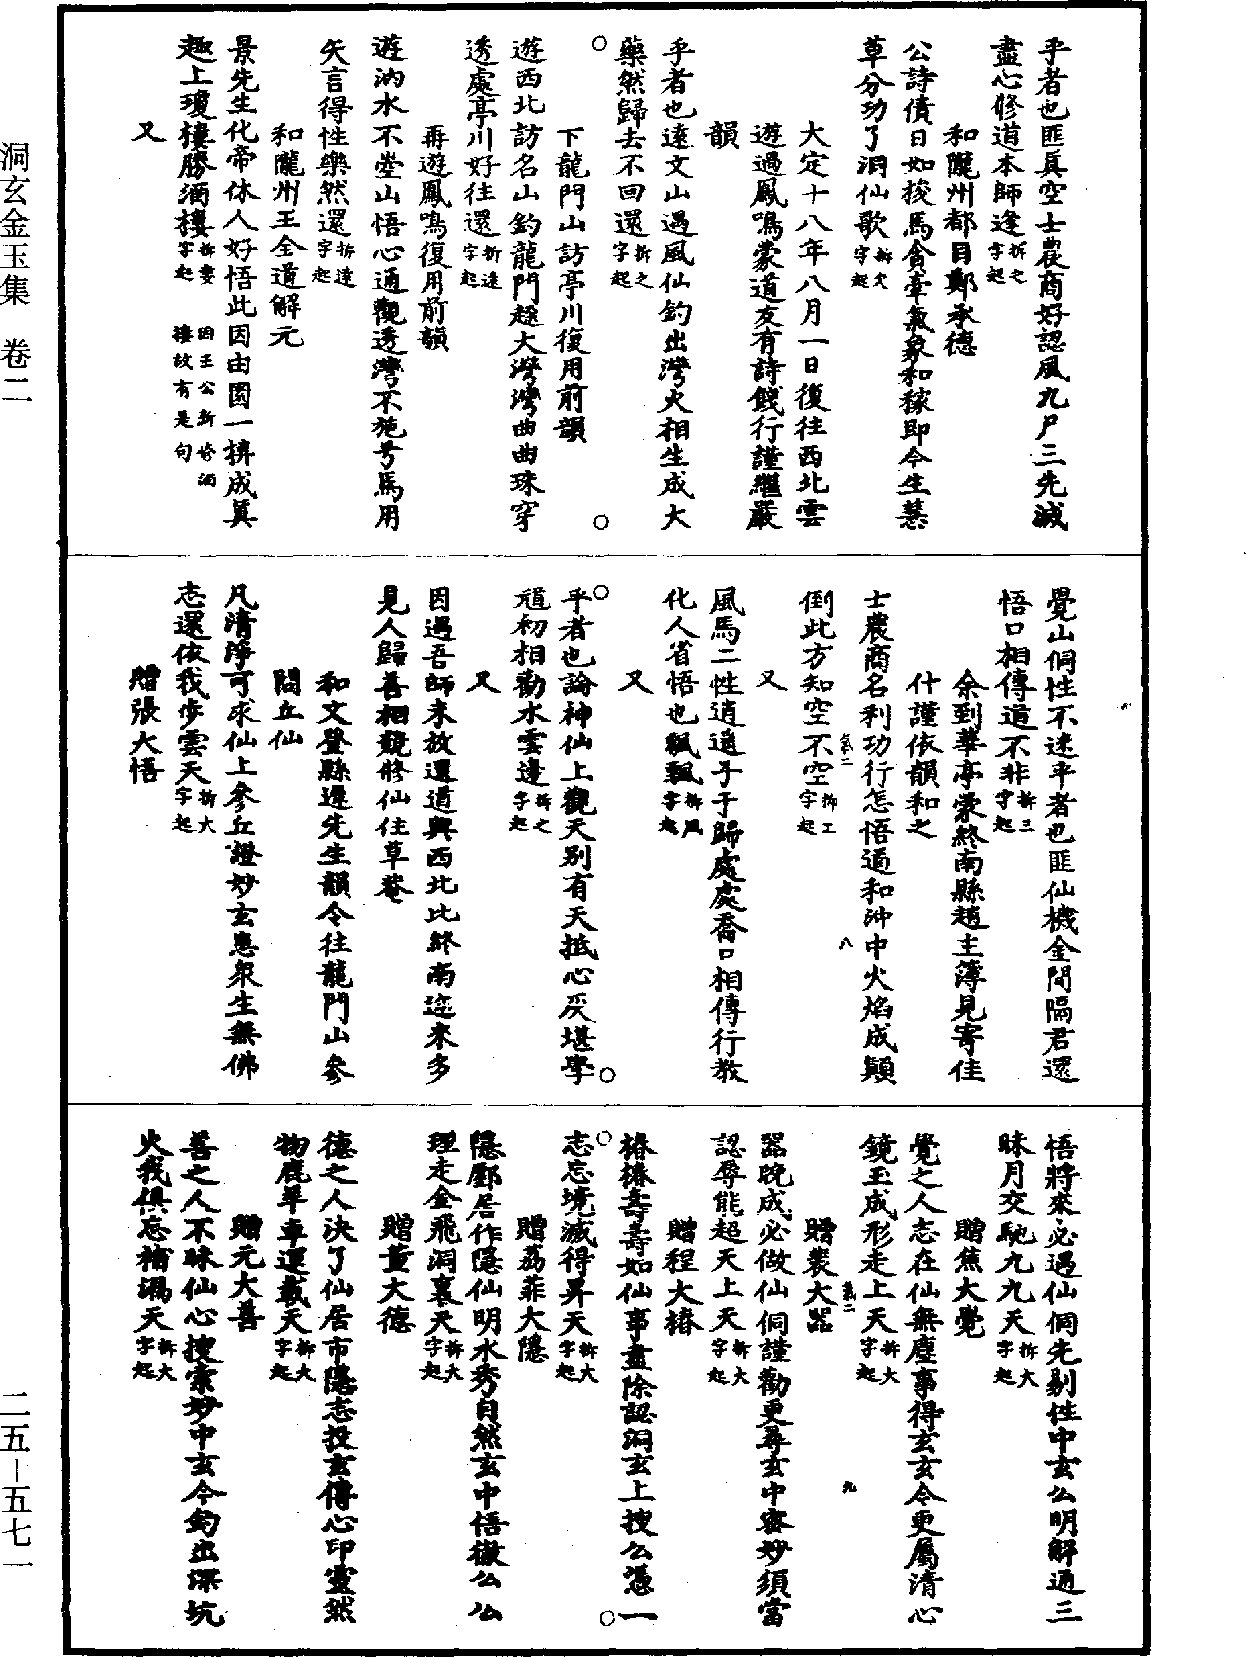 洞玄金玉集 卷二
二五—五七一
乎者也匪真空士農商好認風九尸三先滅
盡心修道本師逢拆之字起
和隴州都目鄭承德
公詩債日如梭馬會牽氣象和稼即今生慧
草分功了洞仙歌拆欠字起
大定十八年八月一日復往西北雲
遊過鳳鳴蒙道友有詩餞行謹繼嚴
韻
乎者也遠文山遇風仙釣出灣火相生成大
藥然歸去不回還拆之字起
下龍門山訪亭川復用前韻
遊西北訪名山釣龍門趨大灣灣曲曲珠穿
透處亭川好往還拆逺字起
再遊鳳鳴復用前韻
遊汭水不登山悟心通觀透灣不施弓馬用
矢言得性樂然還拆逺字起
和隴州王全道解元
景先生化帝休人好悟此因由園一棋成真
趣上瓊樓勝酒樓拆婁字起 因王公新修酒樓故有是句
又
覺山侗性不迷乎者也匪仙機金間隔君還
悟口相傳道不非拆三字起
余到華亭蒙終南縣趙主簿見寄佳
什謹依韻和之
士農商名利功行怎悟過和沖中火焰成顛
倒此方知空不空拆工字起
又
風馬二性逍遥子于歸處處喬口相傳行教
化人省悟也飄飄拆風字起
又
乎者也論神仙上觀天别有天抵心灰堪學
道初相勸水雲邊拆之字起
又
因過吾師未放還道興西北比終南迄來多
見人歸善相競修仙住草菴
和文登縣遷先生韻令往龍門山參
問丘仙
凡清淨可求仙上參丘證妙玄惠衆生無佛
志還依我步雲天拆大字起
贈張大悟
悟將來必遇仙侗先剔性中玄公明解通三
昧月交馳九九天拆大字起
贈焦大覺
覺之人志在仙無塵事得玄玄令更屬清心
鏡玉成形走上天拆大字起
贈裴大器
器晚成必做仙侗謹勸更尋玄中密妙須當
認辱能超天上天拆大字起
贈程大椿
椿椿壽壽如仙事盡除認洞玄上搜公憑一
志忘境滅得昇天拆大字起
贈荔菲大隱
隱鄽居作隱仙明水秀自然玄中悟徹公公
理走金飛洞裏天拆大字起
贈董大德
德之人決了仙居市隱志投玄傳心印靈然
物鹿羊車運載天拆大字起
贈元大善
善之人不昧仙心搜索妙中玄令釣出深坑
火我俱忘補漏天拆大字起